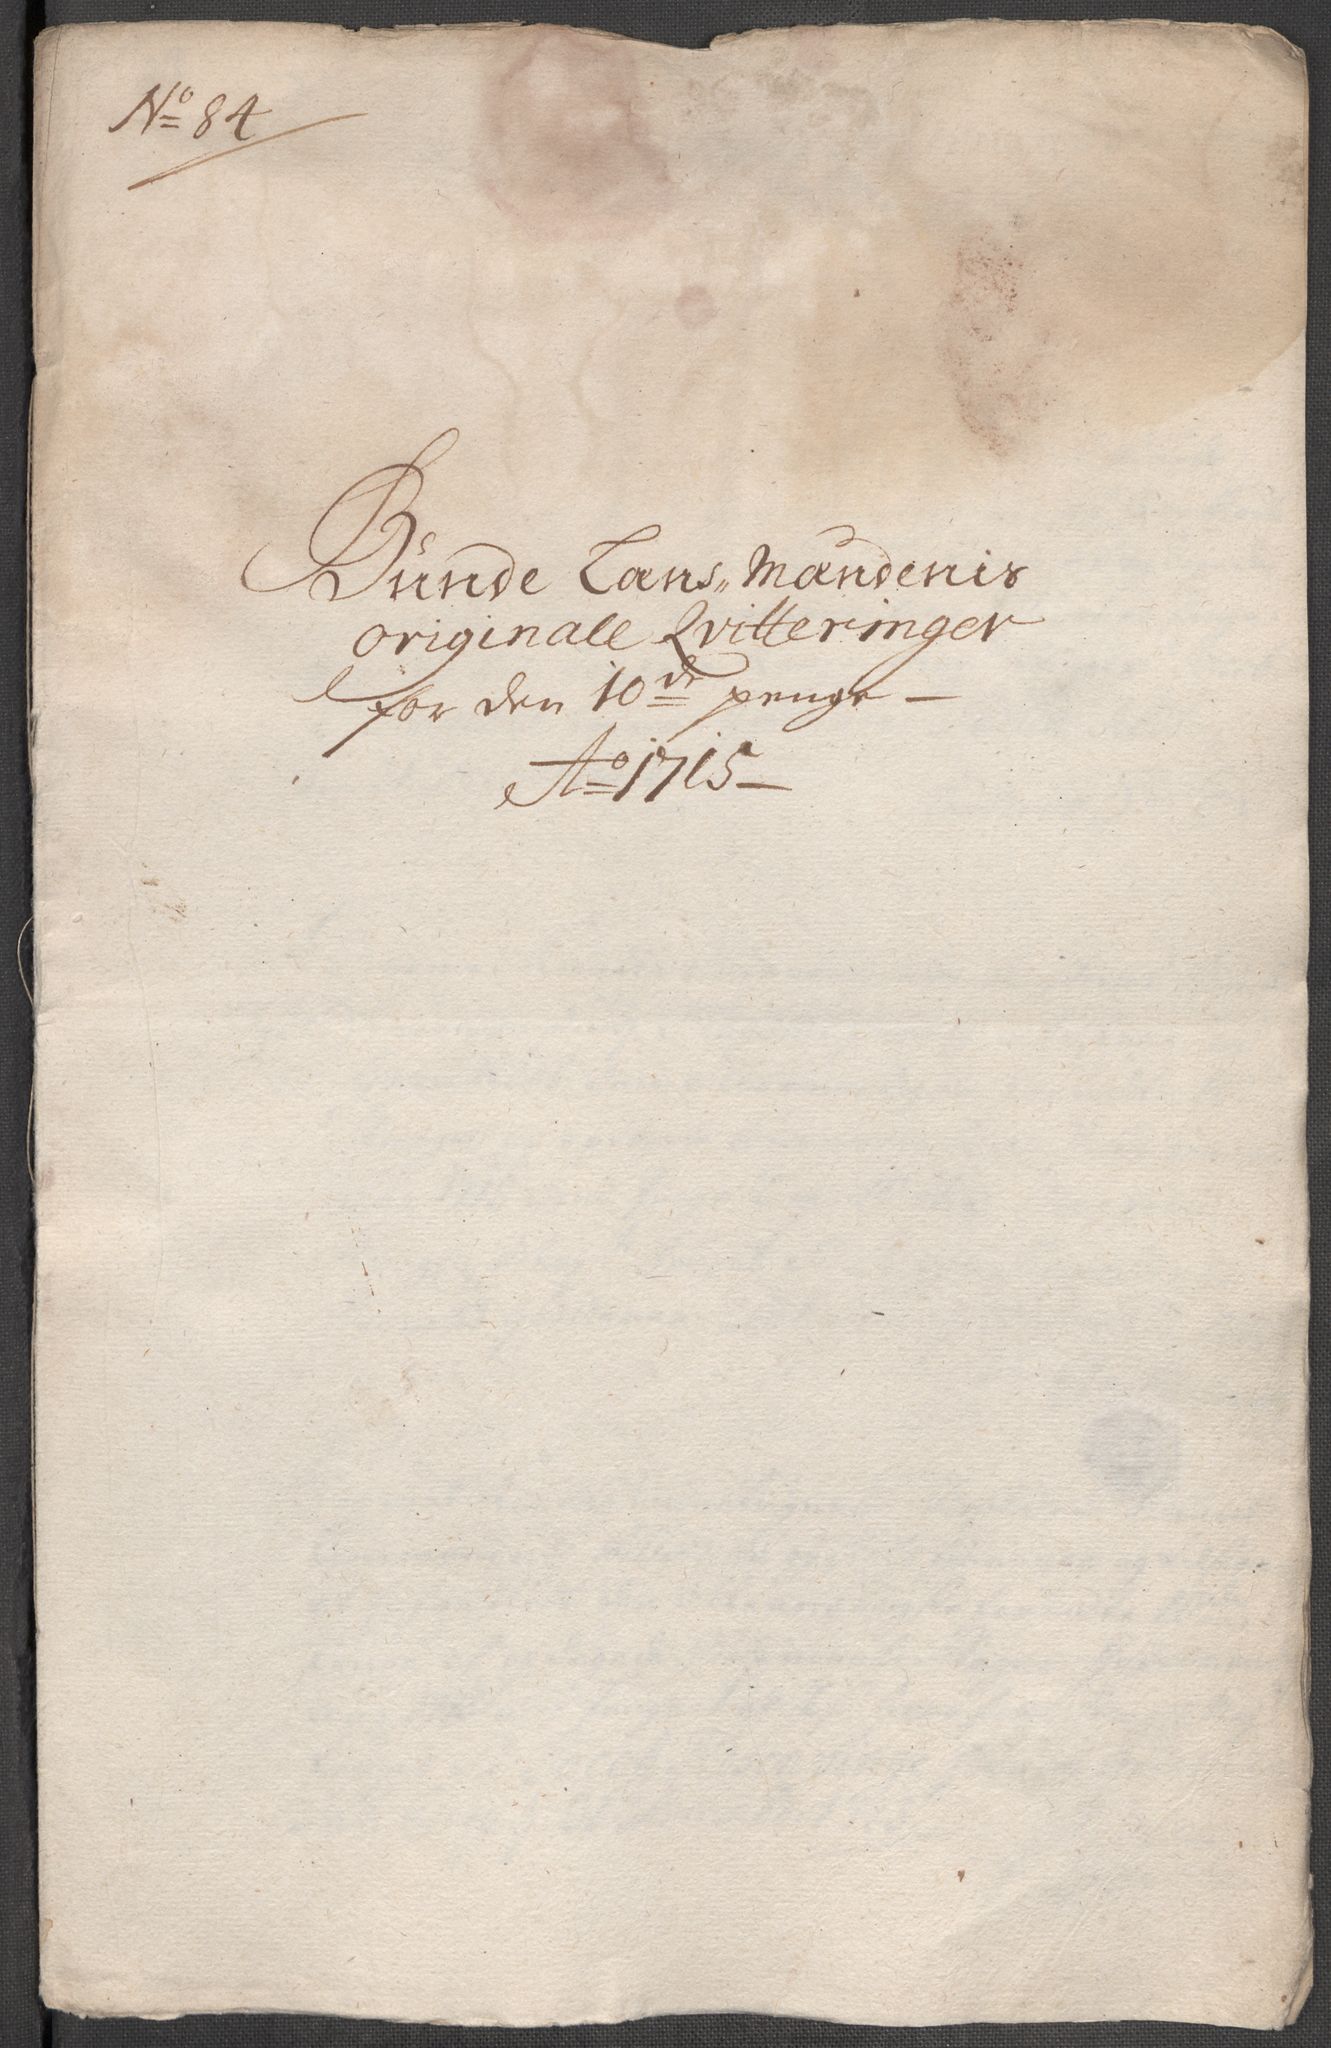 No 84
Bunde Lans„ Mændenis
originale Qvitteringer
for den 10de penge –
Ao 1715 –